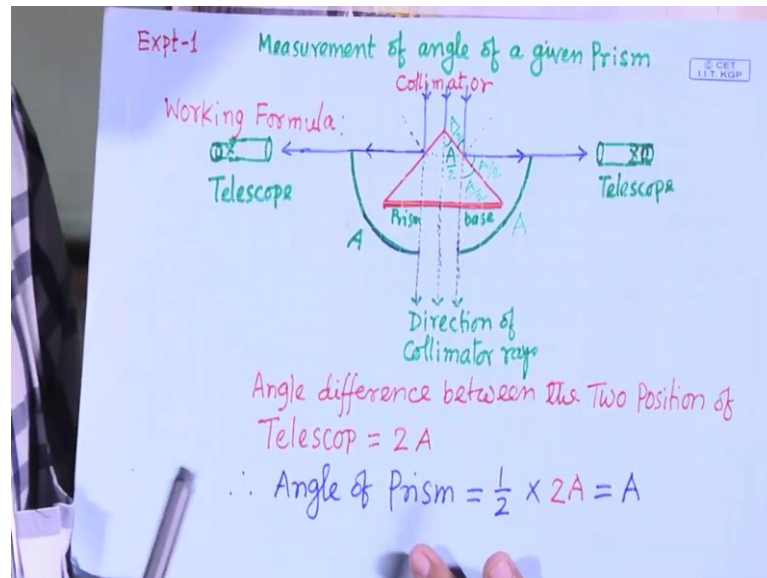 Expt-1 Measurement of angle of a given Prism
© CET
I.I.T. KGP
Collimator
Working Formula:
A/2 A/2
A/2
Telescope Telescope
Prism base
A A
Direction of
Collimator rays
Angle difference between the Two Position of
Telescop = 2A
∴ Angle of Prism = 1/2 × 2A = A